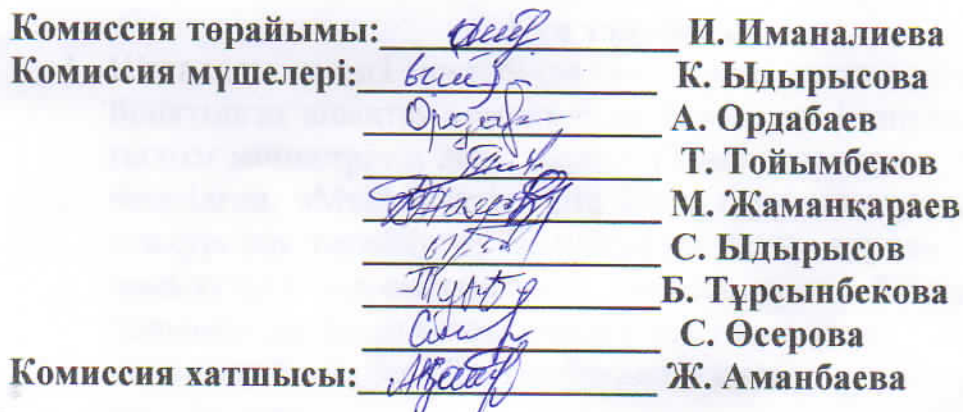 Комиссия төрайымы: И. Иманалиева
Комиссия мүшелері: К. Ыдырысова
А. Ордабаев
Т. Тойымбеков
М. Жаманқараев
С. Ыдырысов
Б. Тұрсынбекова
С. Өсерова
Комиссия хатшысы: Ж. Аманбаева